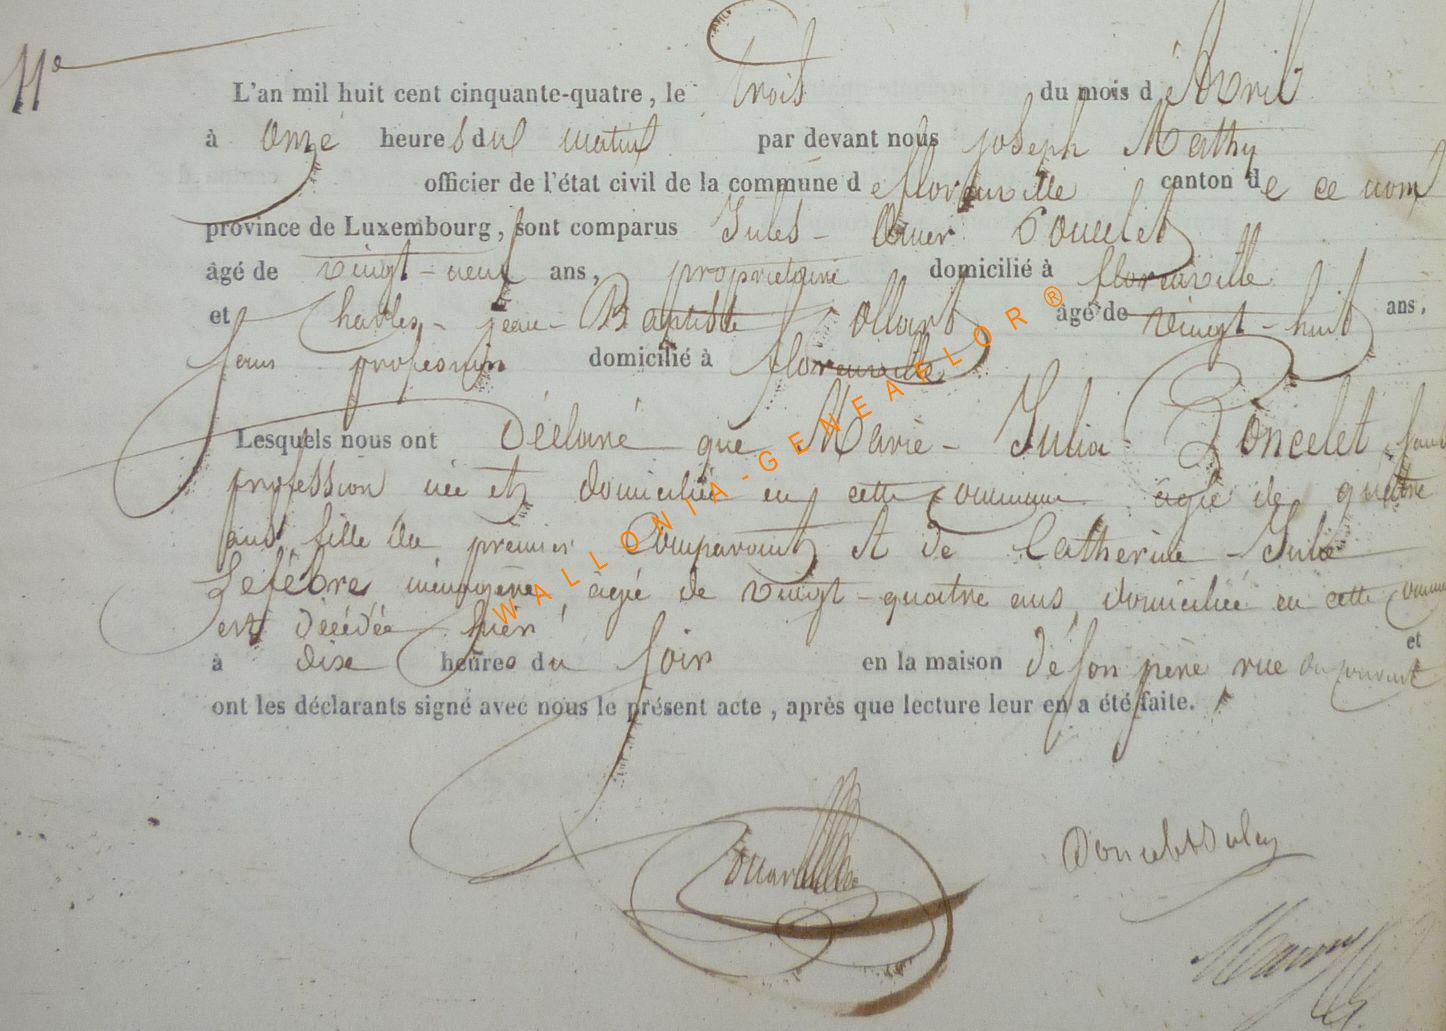 11e
L'an mil huit cent cinquante-quatre, le trois du mois d'Avril
à onze heures du matin par devant nous Joseph Mathy
officier de l'état civil de la commune de florenville canton de ce nom
province de Luxembourg, sont comparus Jules - Omer Poncelet
âgé de vingt-neuf ans, propriétaire domicilié à florenville
et Charles - jean - Baptiste ollard âgé de vingt-huit ans,
sans profession domicilié à florenville
Lesquels nous ont Déclaré que Marie - Julia Poncelet, sans
profession née et domiciliée en cette commune âgée de quatre
ans, fille du premier Comparant et de Catherine - Julie
Lefébvre ménagère, âgée de vingt-quatre ans, domiciliée en cette commune
est décédée hier
à dix heures du soir en la maison dé son père rue du couvent et
ont les déclarants signé avec nous le présent acte, après que lecture leur en a été faite.
Poncelet Jules
WALLONIA-GENEAFLOR®